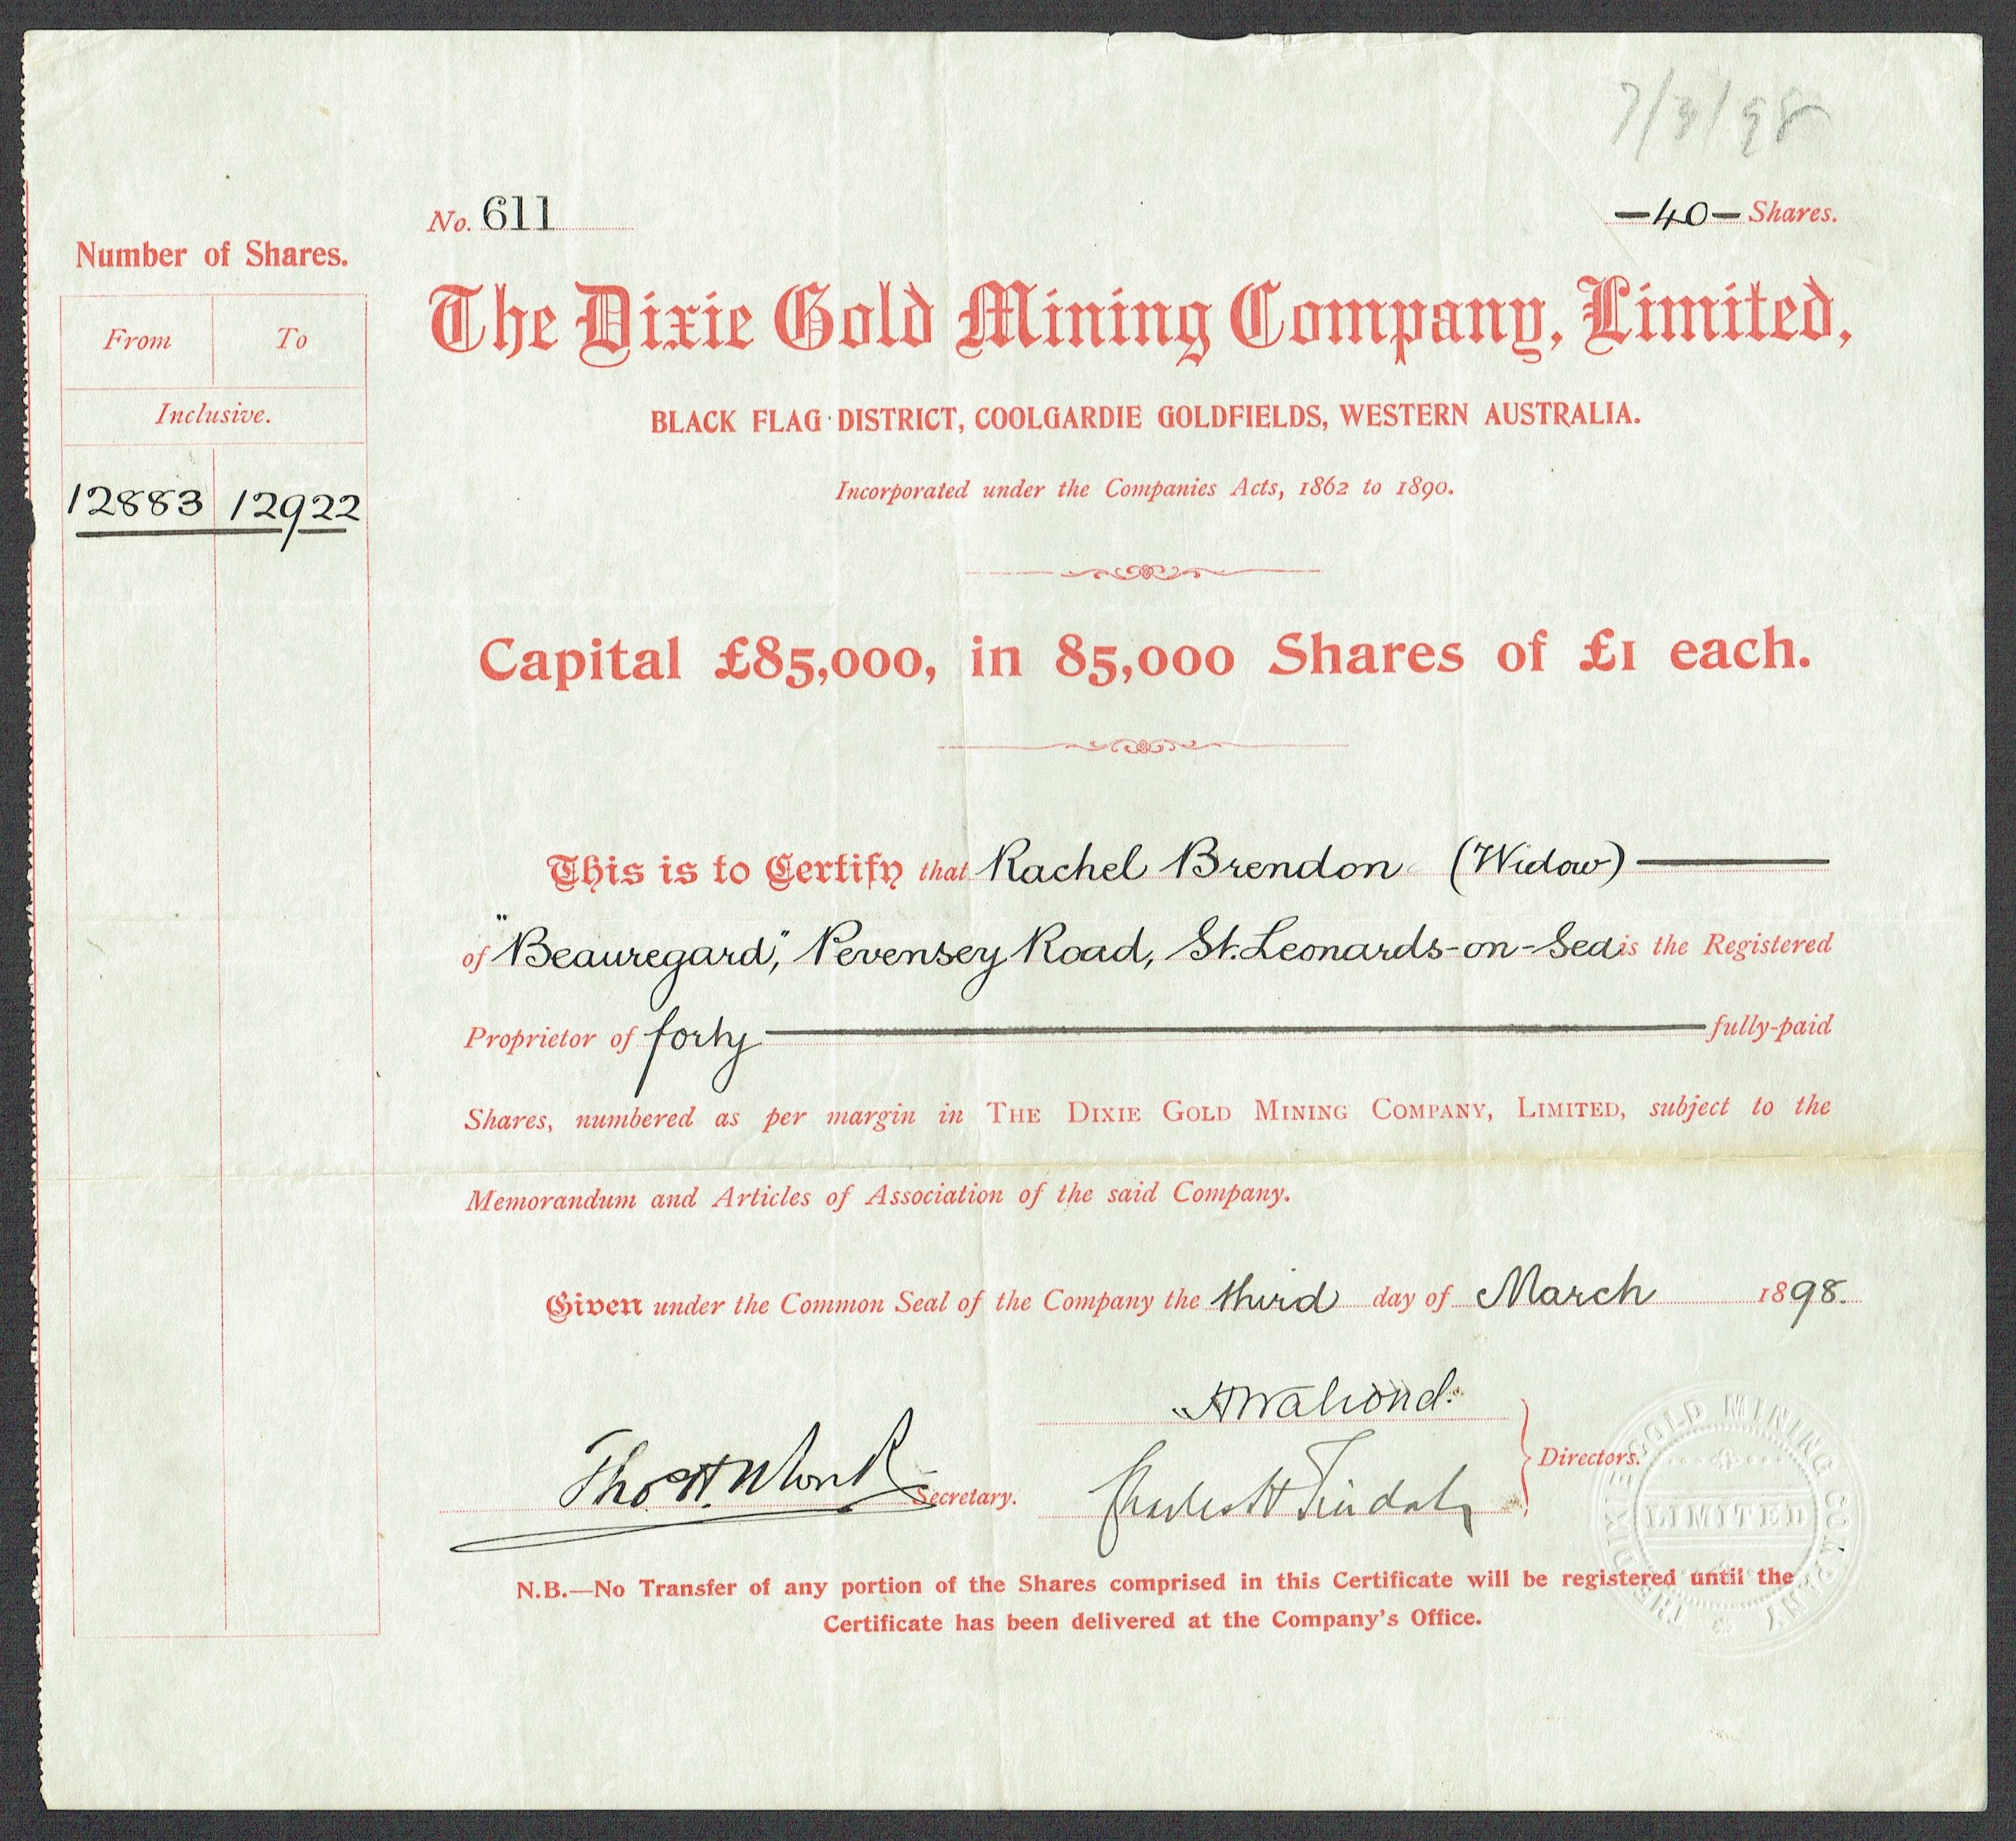 7/3/98
No. 611
—40— Shares.
Number of Shares.
From To
Inclusive.
12883 12922
The Dixie Gold Mining Company, Limited,
BLACK FLAG DISTRICT, COOLGARDIE GOLDFIELDS, WESTERN AUSTRALIA.
Incorporated under the Companies Acts, 1862 to 1890.
Capital £85,000, in 85,000 Shares of £1 each.
This is to Certify that Rachel Brendon (Widow)
of "Beauregard," Pevensey Road, St. Leonards-on-Sea is the Registered
Proprietor of forty fully-paid
Shares, numbered as per margin in THE DIXIE GOLD MINING COMPANY, LIMITED, subject to the
Memorandum and Articles of Association of the said Company.
Given under the Common Seal of the Company the third day of March 1898.
Directors.
Thos. H. Monk Secretary.
Charles H Tindal
THE DIXIE GOLD MINING COMPANY
LIMITED
N.B.—No Transfer of any portion of the Shares comprised in this Certificate will be registered until the
Certificate has been delivered at the Company's Office.